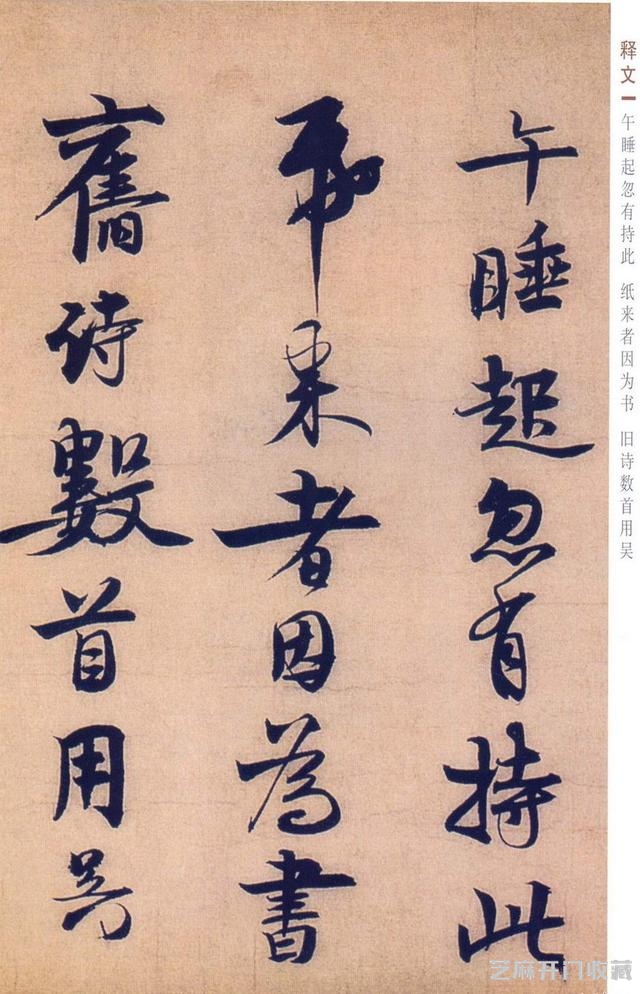 释文
午睡起忽有持此 纸来者因为书 旧诗数首用吴
午睡起忽有持此
帋来者因為書
舊詩數首用吳
芝麻开门收藏